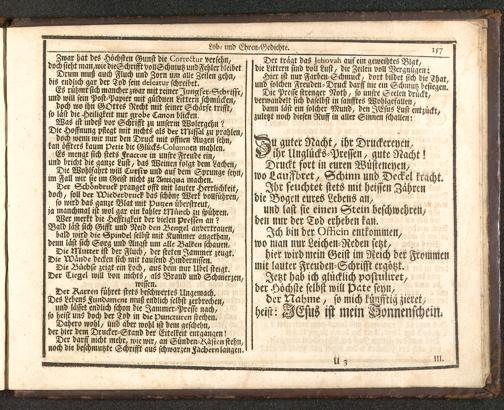 Lob- und Ehren-Gedichte.
157
Zwar hat des Höchsten Gunst die Correctur versehn,
doch sieht man, wie die Schrifft voll Schmutz und Fehler bleibet
Drum muß auch Fluch und Zorn um alle Zeilen gehn,
bis endlich gar der Tod sein deleatur schreibet.
Es rühmt sich mancher zwar mit reiner Jungfer-Schrifft,
und will sein Post-Papier mit güldnen Littern schmücken,
doch wo ihn GOttes Recht mit seiner Schärfe trifft,
so läst die Heiligkeit nur grobe Canon blicken.
Was ist indeß vor Schrifft zu unsern Wolergehn?
Die Hoffnung pflegt mit nichts als der Missal zu prahlen,
doch wenn wir nur den Druck mit offnen Augen sehn,
kan öffters kaum Petit die Glücks-Columnen mahlen.
Es mengt sich stets Fractur in unsre Freude ein,
und bricht die gantze Lust, das Weinen folgt dem Lachen,
Die Wohlfahrt will Cursiv und auf dem Sprunge seyn,
im Fall wir sie im Geist nicht zu Antiqua machen.
Der Schöndruck prangt offt mit lauter Herrlichkeit,
doch, soll der Wiederdruck das schöne Werck vollführen,
so wird das gantze Blat mit Putzen überstreut,
ja manchmal ist wol gar ein kahler Mönch zu spühren.
Wer merckt die Hefftigkeit der vielen Pressen an?
Bald läst sich Gifft und Neid den Bengel anvertrauen,
bald wird die Spindel selbst mit Kummer angethan,
denn läst sich Sorg und Angst um alle Balcken schauen.
Die Mutter ist der Fluch, der steten Jammer zeugt.
Die Wände decken sich mit tausend Hindernissen.
Die Büchse zeigt ein Loch, aus dem nur Übel steigt.
Der Tiegel will von nichts, als Brand und Schmertzen,
wissen.
Der Karren führet stets beschwertes Ungemach.
Des Lebens Fundament muß endlich selbst zerbrechen,
und läßet endlich schon die Jammer-Presse nach,
so heist uns doch der Tod in die Puncturen stechen.
Dahero wohl, und aber wohl ist dem geschehn,
der hier dem Drucker-Stand der Eitelkeit entgangen!
Der darff nicht mehr, wie wir, an Sünden-Kästen stehn,
noch die beschmutzte Schrifft aus schwartzen Fächern langen.
Der trägt das Jehovah auf ein geweihtes Blat,
die Littern sind voll Lust, die Zeilen von Vergnügen:
Hier ist nur Farben-Schmuck, dort bildet sich die That,
und solchen Freuden-Druck darff nie ein Schmutz besiegen.
Die Presse strenger Noth, so unsre Seelen drückt,
verwandelt sich daselbst in sanfftes Wohlgefallen,
dann läst ein solcher Mund, den JEsus Lust entzückt,
zuletzt noch diesen Ruff in aller Sinnen schallen:
Zu guter Nacht, ihr Druckereyen,
ihr Unglücks-Pressen, gute Nacht!
Druckt fort in euren Wüsteneyen,
wo Lauffbret, Schinn und Deckel kracht.
Ihr feuchtet stets mit heissen Zähren
die Bogen eures Lebens an,
und last sie einen Stein beschwehren,
den nur der Tod erheben kan.
Ich bin der Officin entkommen,
wo man nur Leichen-Reden setzt,
hier wird mein Geist im Reich der Frommen
mit lauter Freuden-Schrifft ergötzt.
Jetzt hab ich glücklich postuliret,
der Höchste selbst will Pate seyn,
der Nahme, so mich künfftig zieret,
heist: JEsus ist mein Sonnenschein.
U 3
III.